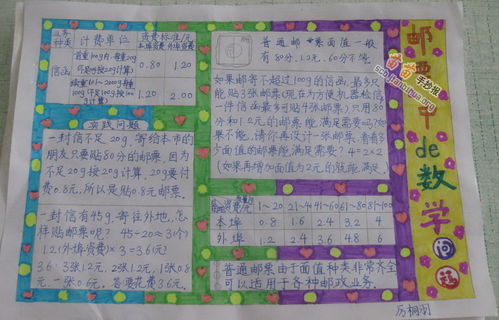 邮票中de数学问题
业务种类 计费单位 资费标准/元
本埠资费 外埠资费
信函 首重100g内,每重20g(不足20g按20g计算) 0.80 1.20
续重101~2000g每重100g(不足100g按100g计算) 1.20 2.00
实践问题
一封信不足20g,寄给本市的
朋友只要贴80分的邮票,因为
不足20g按20g计算,20g要付
费0.8元,所以是贴0.8元邮票。
一封信有45g,寄往外地,怎
样贴邮票呢?45÷20≈3(个)
1.2(外埠资费)×3=3.6(元)
3.6:3张1.2元,2张1.2元,1张0.8
元,一张0.6元。答要花费3.6元。
普通邮票面值一般
有80分、1.2元、60分不等
如果邮寄不超过100g的信函,最多只
能贴3张邮票(现在为方便机器检信
一件信函最多可贴4张邮票)只用80
分和1.2元的邮票,能满足需要吗?如
果不能,请你再设计一张邮票,看看多
少面值的邮票能满足需要?4=2×2
(如果再增加面值为2元的就能满足
1~20 21~40 41~60 61~80 81~100
本埠 0.8 1.6 2.4 3.2 4
外埠 1.2 2.4 3.6 4.8 6
普通邮票由于面值种类非常齐全
可以适用于各种邮政业务。
苗苗手抄报